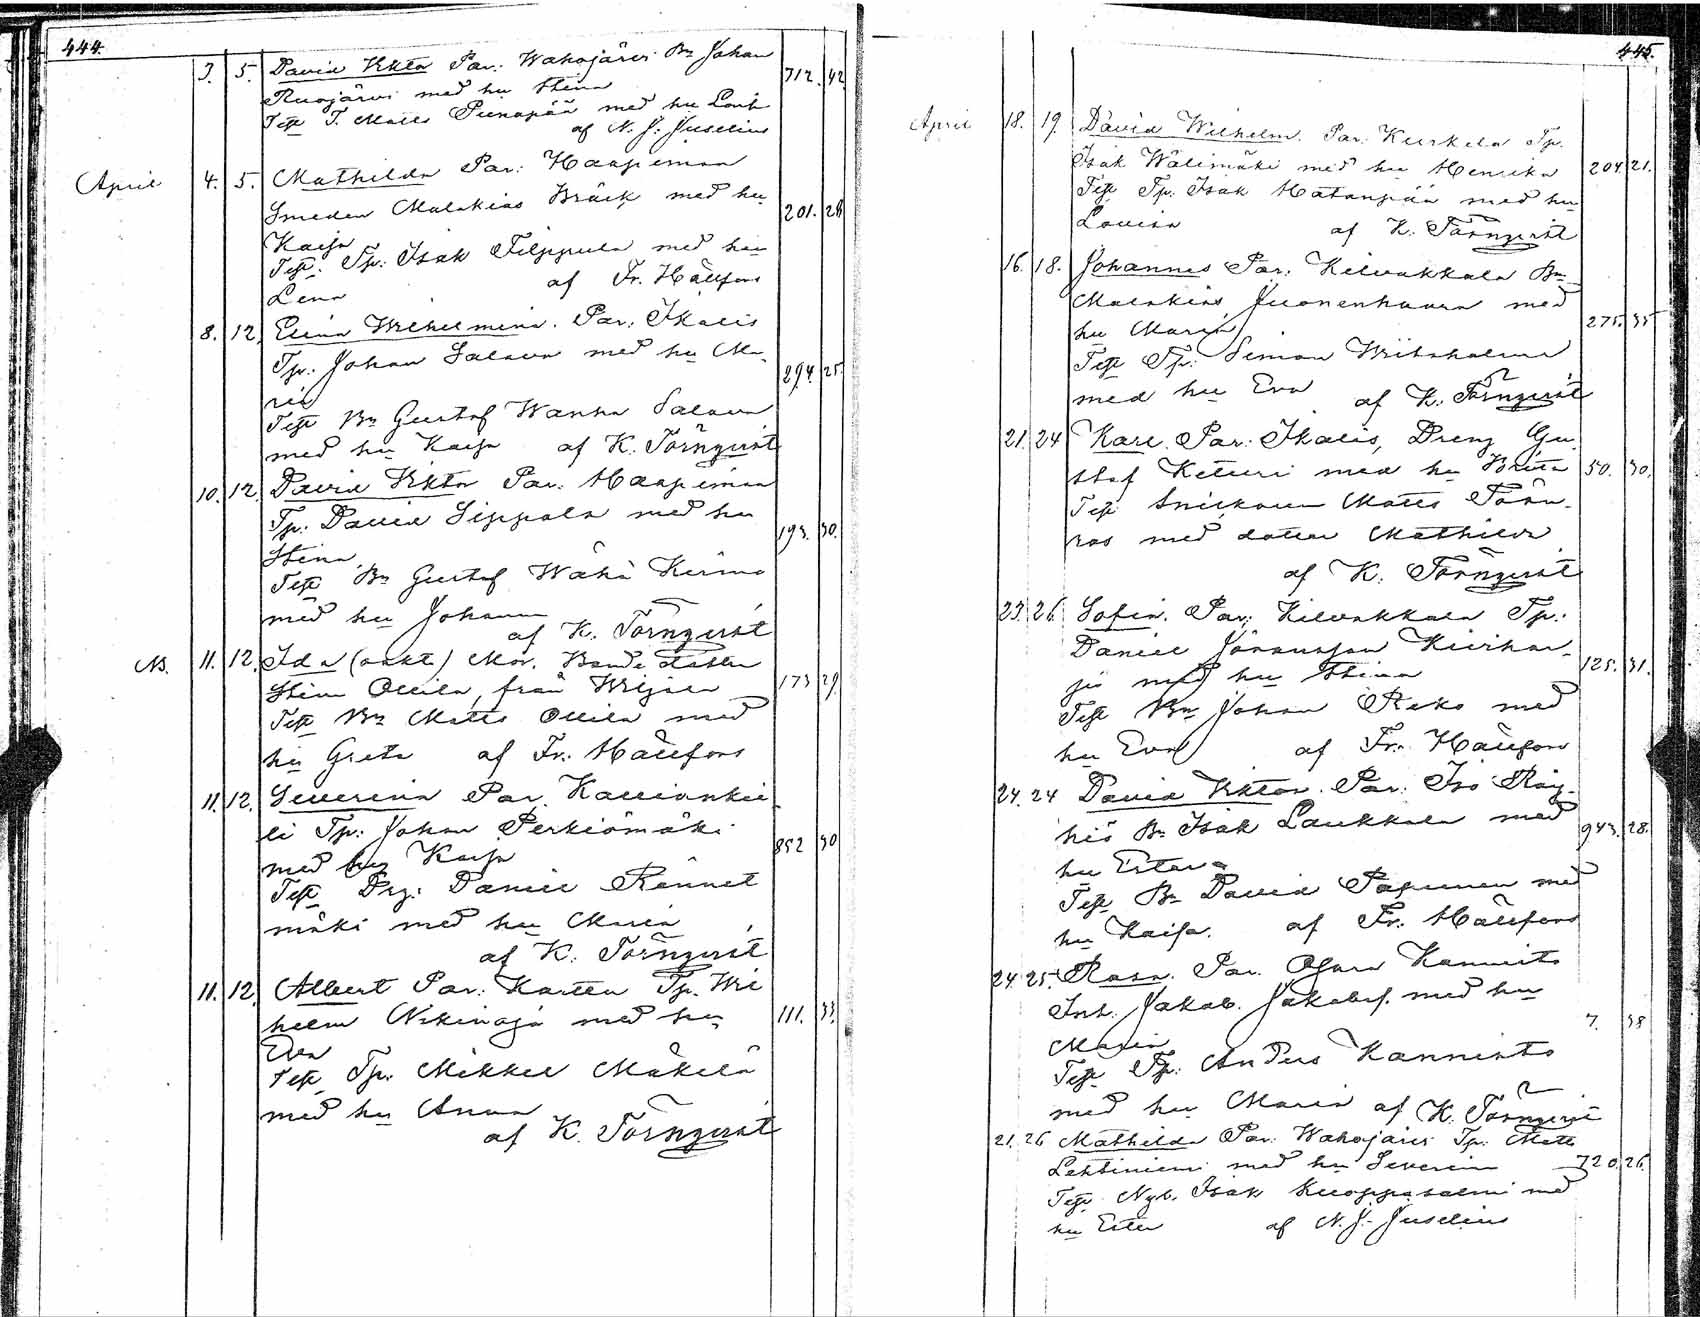 444.
3. 5. David Viktor Par: Wahojärvi Bn Johan 712. 42
Ruojärvi med hu Stina
Test T. Matts Punapää med hu Lovis
af N. J. Juselius
April 4. 5. Mathilda Par: Haapimaa
Smeden Malakias Bräck med hu 201. 28
Kaisa
Test. Tp: Isak Filppula med hu
Lena af Fr. Hällfors
8. 12. Elina Wilhelmina. Par: Ikalis
Tp. Johan Salava med hu Ma- 294. 25.
ria
Test Bn Gustaf Wanha Salava
med hu Kaisa af K. Törnqvist
10. 12. David Viktor Par: Haapimaa
Tp. David Sippola med hu 193. 30.
Stina
Test Bn Gustaf Wähä Keimo
med hu Johanna
af K. Törnqvist
NB. 11. 12. Ida (oäkta) Mor. Bonde dottern
Stina Ollila, från Wiljala 173 29
Test Bn Matts Ollila med
hu Greta af Fr. Hällfors
11. 12. Severina Par. Kallionkie-
li Tp: Johan Perkiömäki 852 30
med hu Kaisa
Test Drg: Daniel Rännet
mäki med hu Maria
af K. Törnqvist
11. 12. Albert Par: Karttu Tp. Wil
helm Niskinoja med hu 111. 33.
Eva
Test Tp: Mikkel Mäkelä
med hu Anna
af K. Törnqvist
445.
April 18. 19. David Wilhelm. Par: Kurkela Tp.
Isak Wälimäki med hu Henrika 204. 21.
Test Tp. Isak Hatanpää med hu
Lovisa af K. Törnqvist
16. 18. Johannes Par: Kilvakkala Bn
Malakias Juonenhaara med
hu Maria 275. 35
Test Tp: Simon Wiitaholma
med hu Eva af K. Törnqvist
21. 24 Karl Par: Ikalis, Dreng Gu
staf Keturi med hu Brita 50. 30.
Test Snickaren Matts Törn-
ros med dotter Mathilda
af K. Törnqvist
23. 26 Sofia. Par: Kilvakkala Tp.
Daniel Jöransson Kivihar-
ju med hu Stina 125. 31.
Test Bn Johan Reko med
hu Eva af Fr. Hällfors
24. 24 David Viktor. Par: Iso Röy-
hiö Bn Isak Laukkala med 943. 28.
hu Ester
Test Bn David Papunen med
hu Kaisa. af Fr. Hällfors
24 25. Rosa. Par. Ojara Kannisto
Inh. Jakob Jakobss. med hu
Maria 7. 38
Test Tp: Anders Kannisto
med hu Maria af K. Törnqvist
21. 26 Mathilda Par: Wahojärvi Tp: Matts
Lehtiniemi med hu Severina 720. 26.
Test Nyb. Isak Kuoppasalmi med
hu Ester af N. J. Juselius